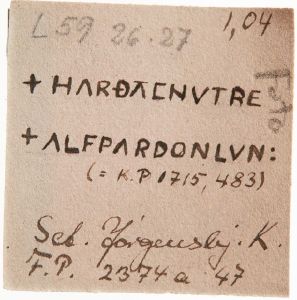 L 59 26-27 1,04
Foto
+ HARÐACNVTRE
+ ALFPARDONLVN:
(= K.P. 1715, 483)
Sct. Jörgensbj. K.
F.P. 2374a 47